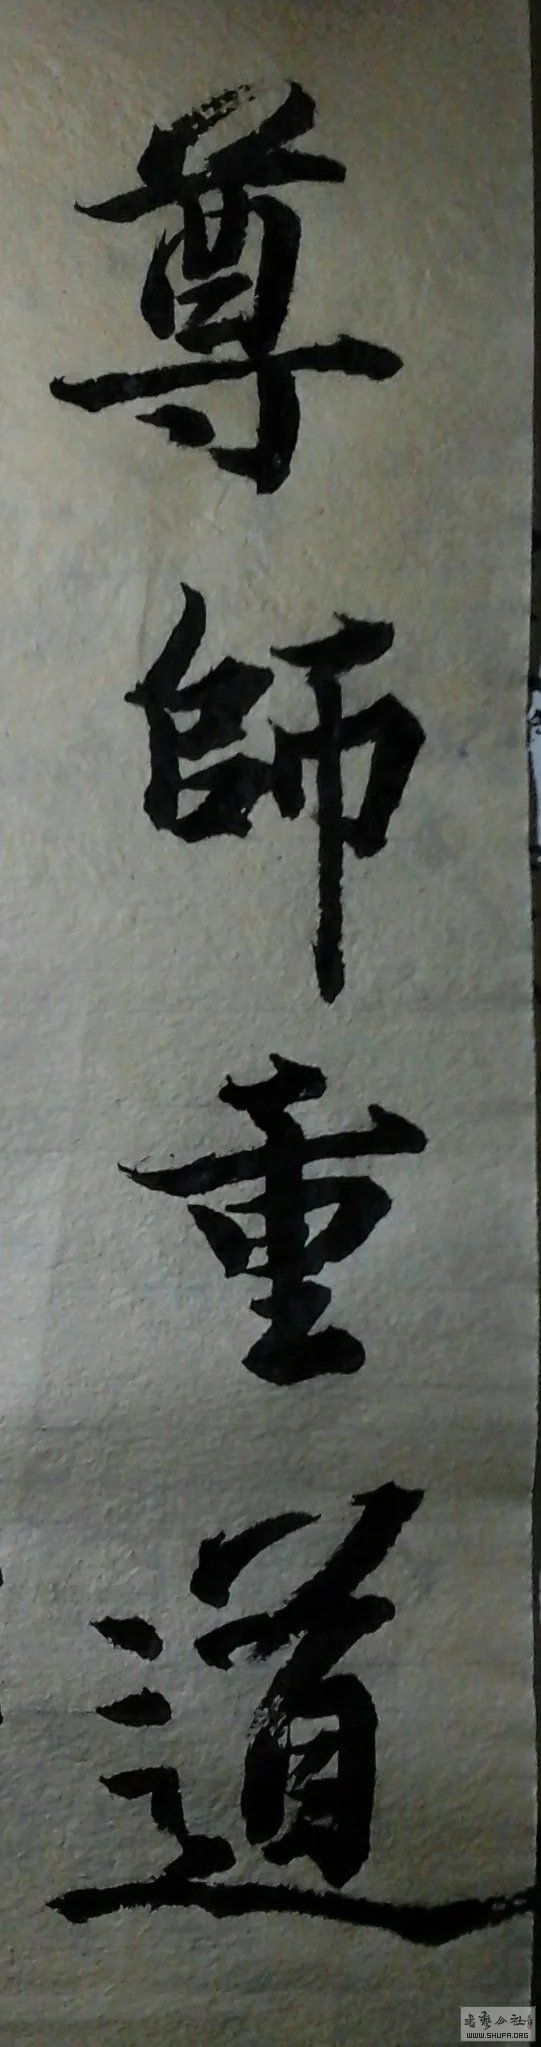 尊師重道
書藝公社
WWW.SHUFA.ORG